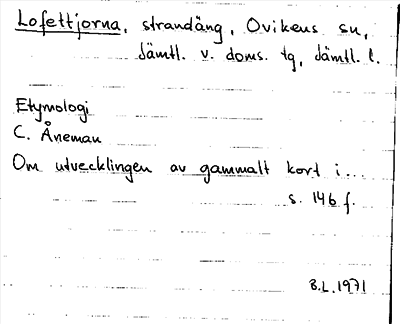 Lofettjorna, strandäng, Ovikens sn,
Jämtl. v. doms. tg, Jämtl. l.
Etymologi
C. Åneman
Om utvecklingen av gammalt kort i...
s. 146 f.
B.L. 1971